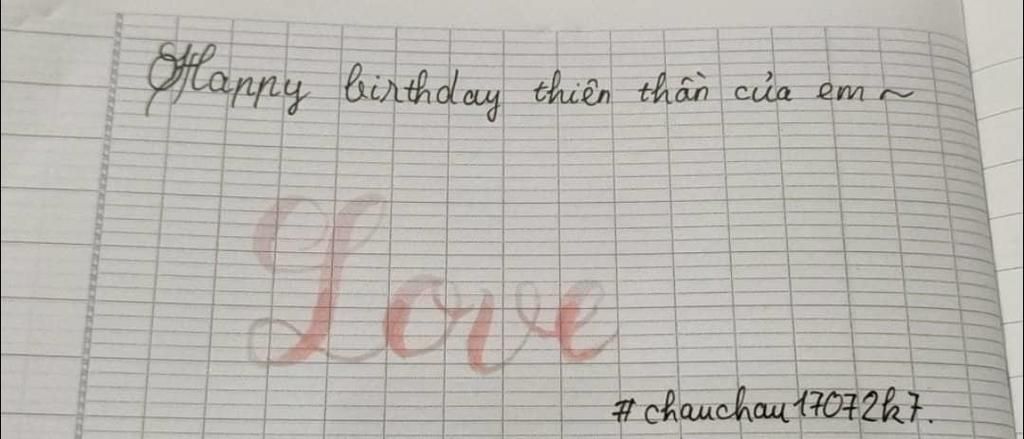 Happy birthday thiên thần của em ~
Love
#chauchau17072k7.